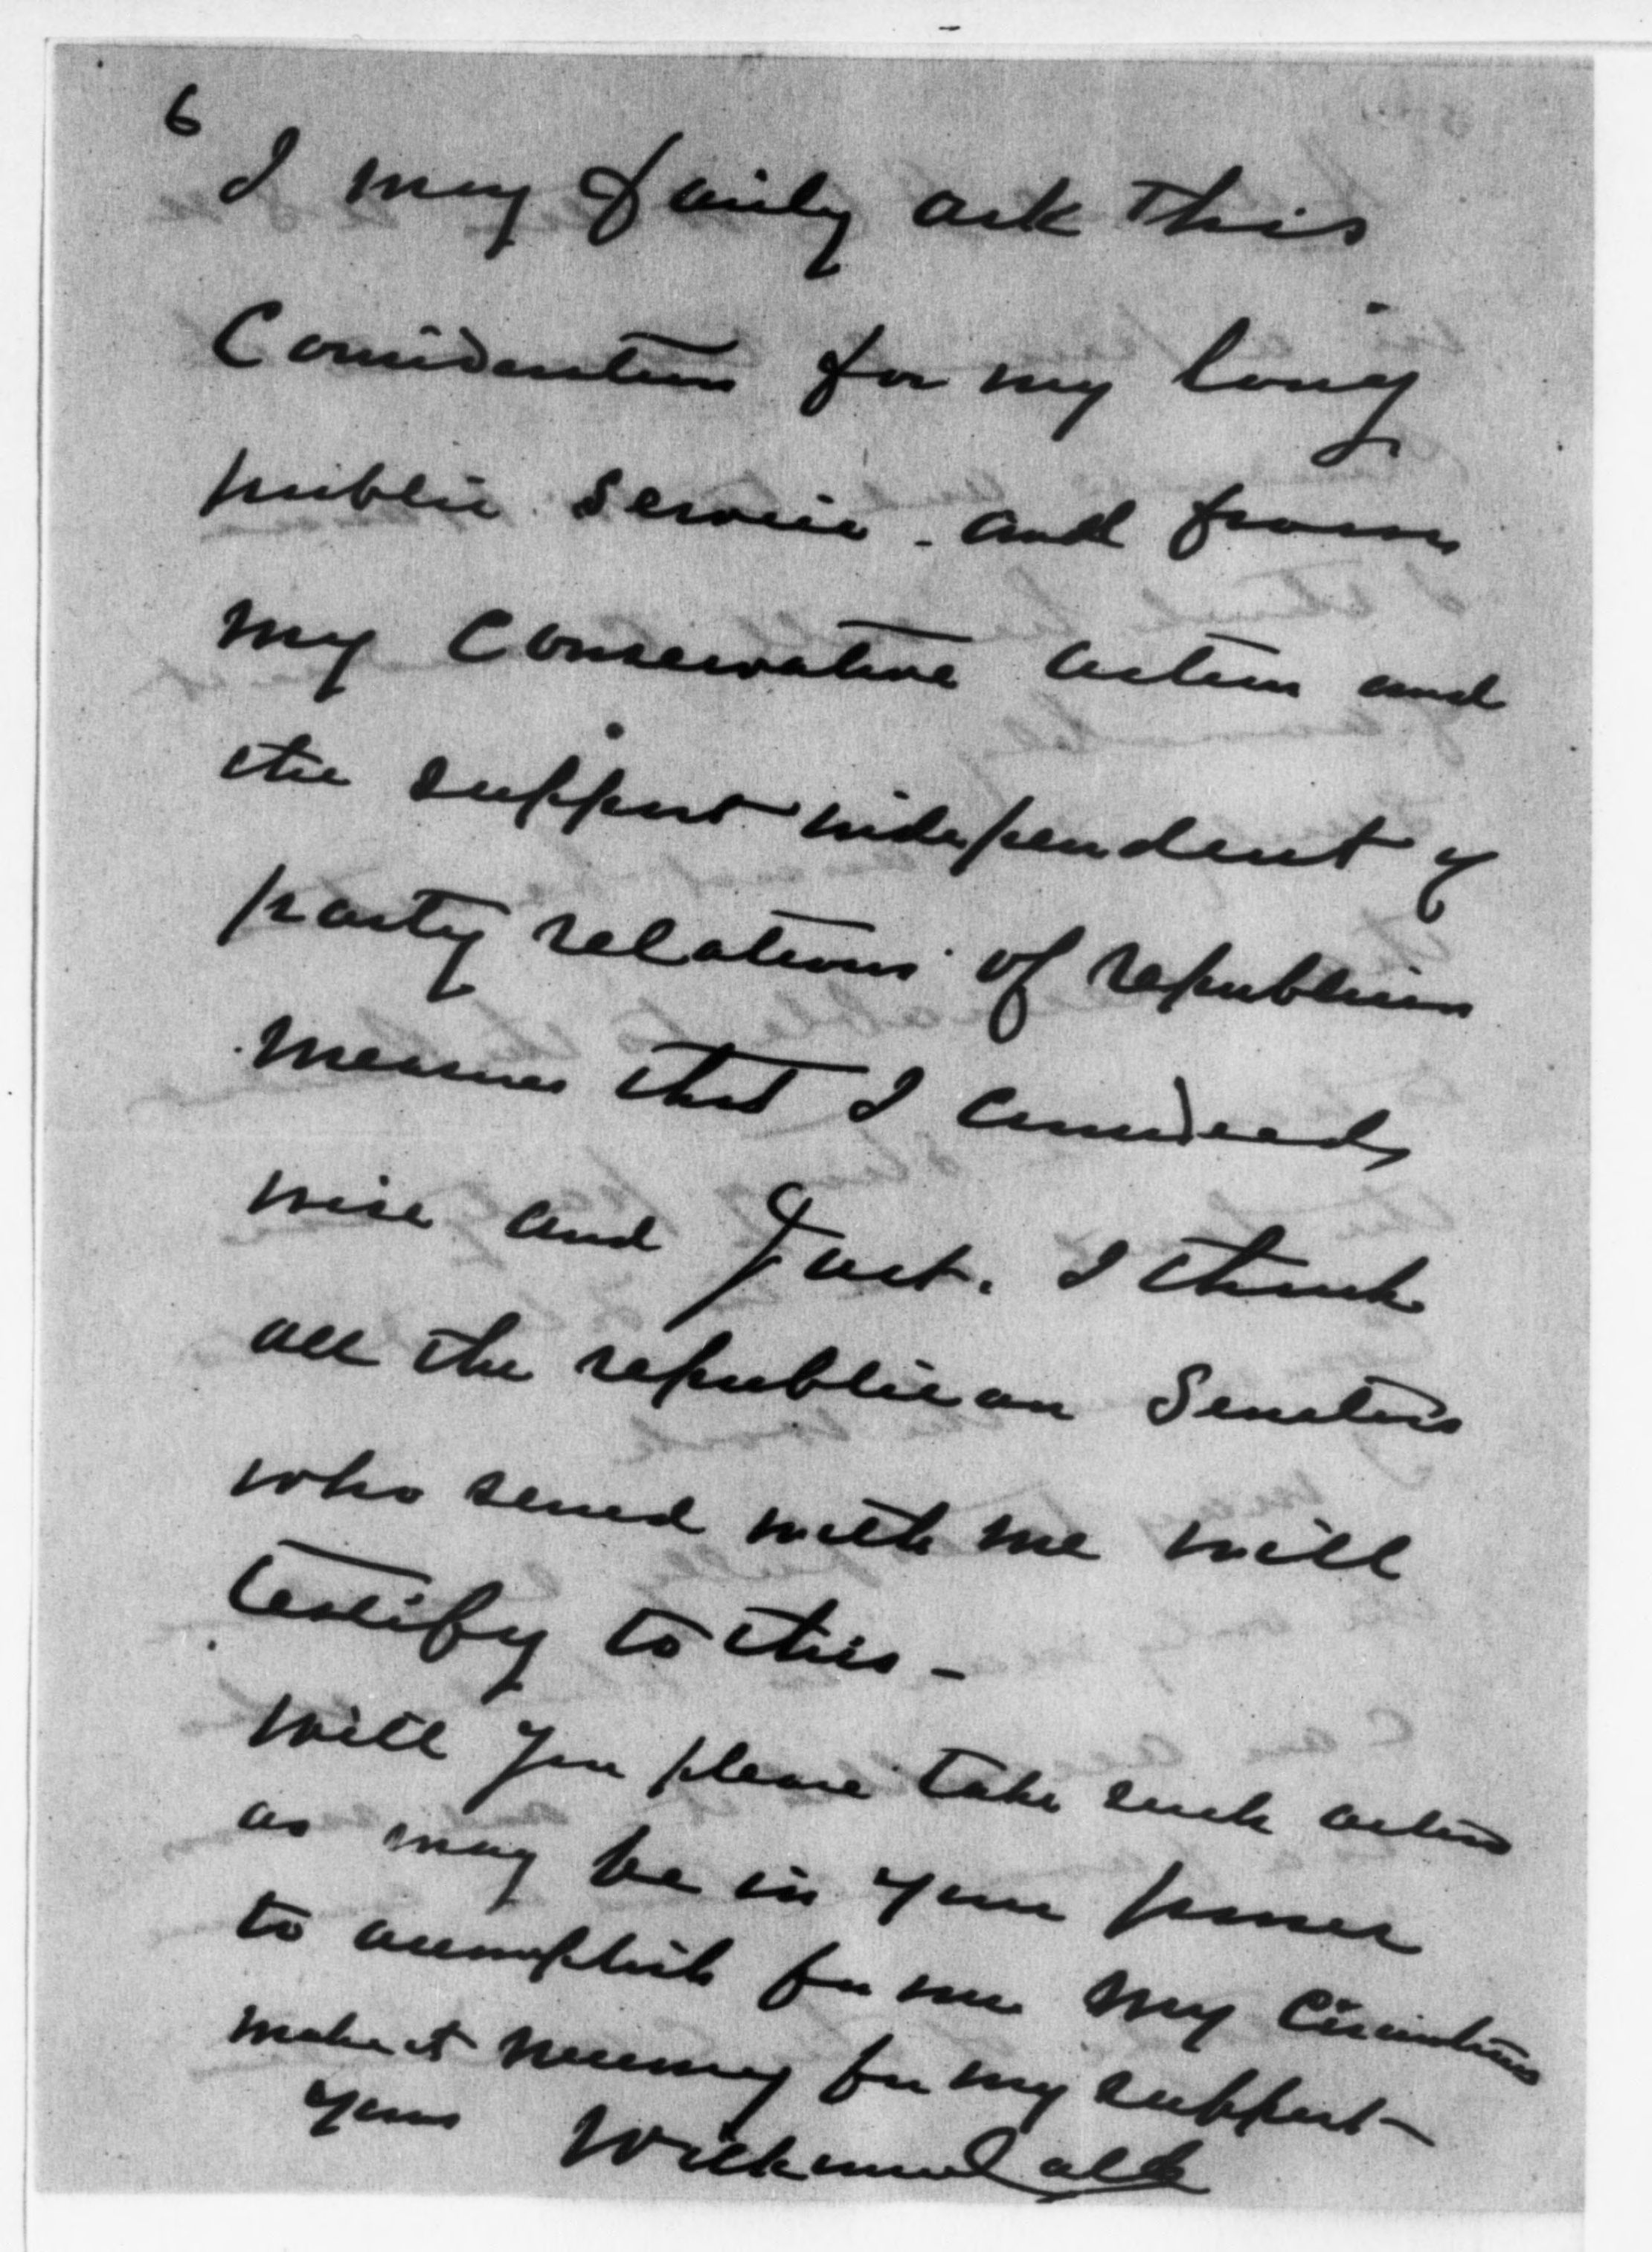 6
I may fairly ask this
Consideration for my long
public service - and from
my Conservative action and
the support independent of
party relations of republican
measures that I considered
wise and Just. I think
all the republican Senators
who served with me will
testify to this -
Will you please take such action
as may be in your power
to accomplish for me My Circumstances
make it necessary for my support -
Yours Wilkinson Call